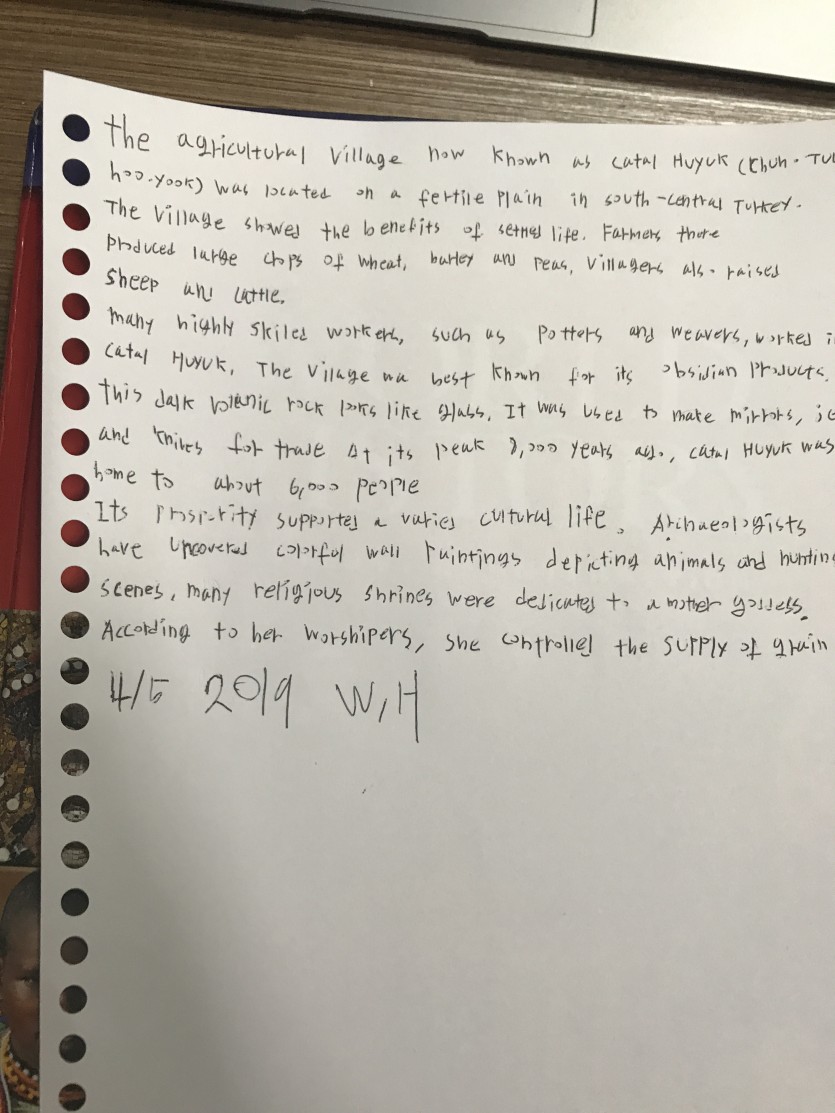 the agricultural Village now known as catal Huyuk (Chuh. TUL
hoo.yook) was located on a fertile plain in south-central Turkey.
The Village showed the benefits of settled life. Farmers there
produced large crops of wheat, barley and peas, Villagers also raised
Sheep and cattle.
many highly skiled workers, such as Potters and weavers, worked in
catal Huyuk, The Village wa best known for its obsidian Products.
this dark volcanic rock looks like glass. It was used to make mirrors, je
and knives for trade At its peak 8,000 years ago, catal Huyuk was
home to about 6,000 people
Its Prosperity supported a varied cultural life. Archaeologists
have uncovered colorful wall Paintings depicting animals and hunting
scenes, many religious shrines were dedicated to a mother goddess.
According to her worshipers, she controlled the supply of grain
4/5 2019 W,H